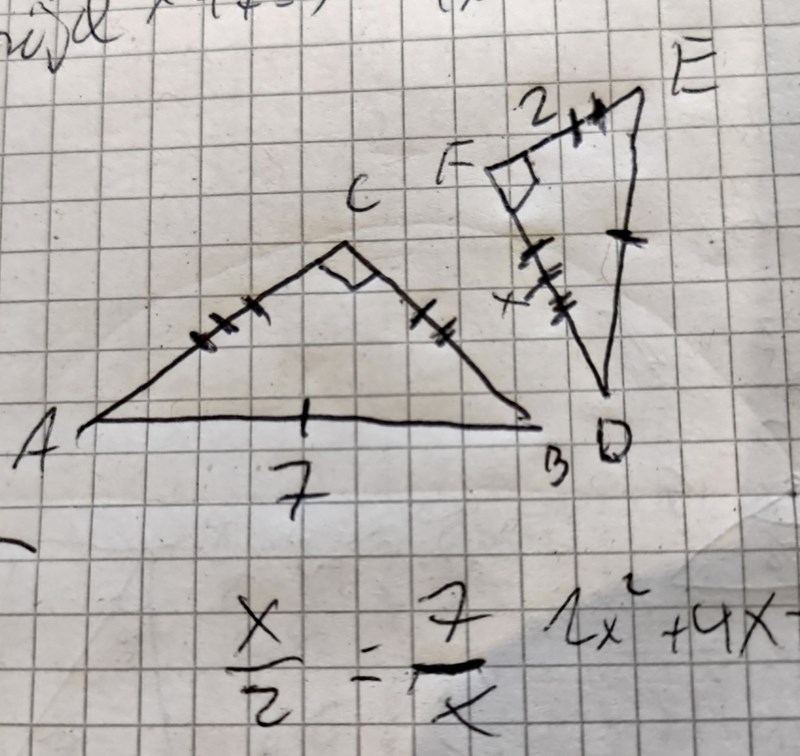 E
2
F
C
x
A
B
D
7
x/2 = 7/x
2x² + 4x -